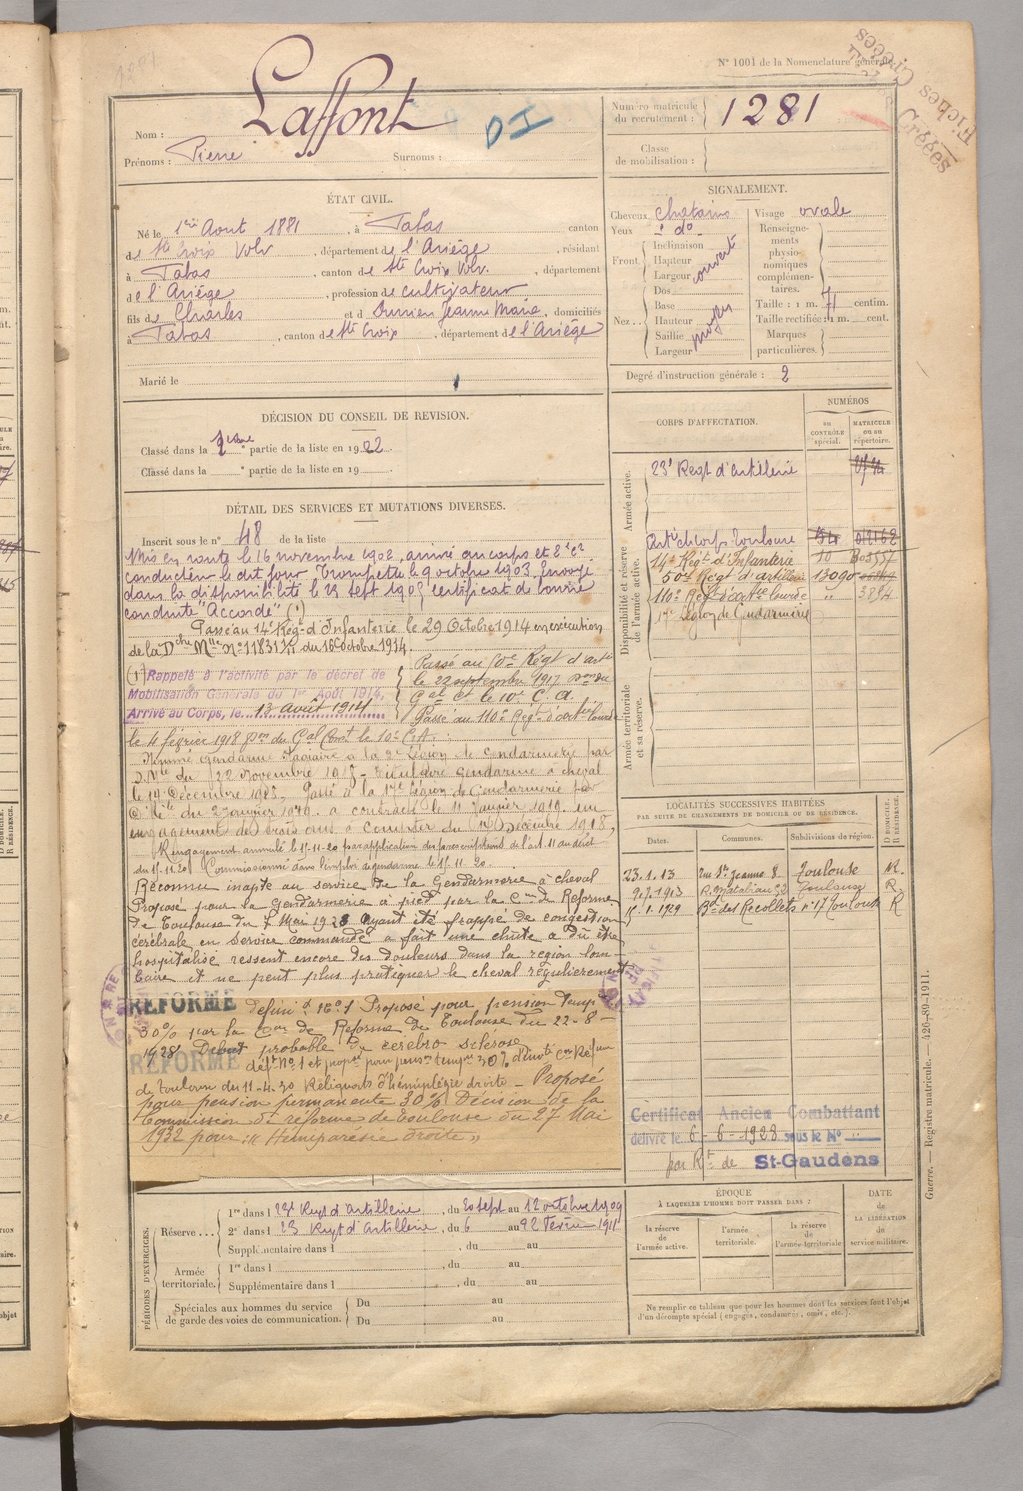 N° 1001 de la Nomenclature générale.
Fiches Créées
Nom : Laffont
DI
Prénoms : Pierre Surnoms :
Numéro matricule du recrutement : 1281
Classe de mobilisation :
ÉTAT CIVIL.
Né le 1er Aout 1881, à Tatas canton
de Ste Croix Volv, département de l'Ariège, résidant
à Tatas, canton de Ste Croix Volv., département
de l'Ariège, profession de cultivateur
fils de Charles et d Jeanne Marie, domiciliés
à Tatas, canton de Ste Croix, département de l'Ariège
Marié le
SIGNALEMENT.
Cheveux chatains Visage ovale
Yeux do
Front Inclinaison Hauteur Largeur couvert
Nez Dos Base Hauteur Saillie Largeur moyen
Renseignements physionomiques complémentaires.
Taille : 1 m. 71 centim.
Taille rectifiée : 1 m. cent.
Marques particulières.
Degré d'instruction générale : 2
DÉCISION DU CONSEIL DE REVISION.
Classé dans la 1ère partie de la liste en 1902.
Classé dans la ° partie de la liste en 19
CORPS D'AFFECTATION.
NUMÉROS
au CONTRÔLE spécial.
MATRICULE ou au répertoire.
Armée active.
23e Regt d'artillerie
Disponibilité et réserve de l'armée active.
14e Régt d'Infanterie 10
50e Regt d'artillerie 13090
110e Regt d'artie lourde " 3894
17e Légion de Gendarmerie
Armée territoriale et sa réserve.
DÉTAIL DES SERVICES ET MUTATIONS DIVERSES.
Inscrit sous le n° 48 de la liste
Mis en route le 16 novembre 1902, arrivé au corps et 2e cr
conducteur le dit jour Trompette le 9 octobre 1903, Envoyé
dans la disponibilité le 18 sept 1905 certificat de bonne
conduite "Accordé" (1)
Passé au 14e Rég d'Infanterie le 29 Octobre 1914 en exécution
de la Dche Mlle du 16 Octobre 1914.
(1) Rappelé à l'activité par le décret de
Mobilisation Générale du 1er Août 1914,
Arrivé au Corps, le 13 Août 1914
Passé au 50e Regt d'artie
le 22 septembre 1917 son du
Gal Ct le 10e C.A.
Passé au 110e Regt d'artie lourde
le 4 février 1918 son du Gal Comt le 10e C.A.
Nommé gendarme stagiaire à la 9e Légion de Gendarmerie par
D. Mle du 22 Novembre 1918 - Titulaire gendarme à cheval
le 14 Décembre 1918, Passé à la 17e Légion de Gendarmerie par
D. Mle du 2 janvier 1919. a contracté le 11 Janvier 1919 un
engagement de trois ans à compter du Décembre 1918,
Rengagement annulé le 15-11-20 par application des prescriptions de l'art. 11 au décret
du 15.11.20. Commissionné dans l'emploi de gendarme le 15.11.20.
Reconnu inapte au service de la Gendarmerie à cheval
Proposé pour la Gendarmerie à pied par la Con de Réforme
de Toulouse du 7 Mai 1928 Ayant été frappé de congestion
cérébrale en service commandé a fait une chute a dû être
hospitalisé ressent encore des douleurs dans la région lom
baire et ne peut plus pratiquer le cheval régulièrement
RÉFORME
défini n° 1 Proposé pour pension temp.
30% par la Con de Réforme de Toulouse du 22-8-
1928 Début probable de cerebro sclérose
RÉFORME
déf. N° 1 et propé pour pension tempre 30% Con Réforme
de Toulouse du 11-4-30 Reliquats d'hémiplégie droite - Proposé
pour pension permanente 30% Décision de la
Commission de réforme de Toulouse du 27 Mai
1932 pour : « Hémiparésie droite »
LOCALITÉS SUCCESSIVES HABITÉES
PAR SUITE DE CHANGEMENTS DE DOMICILE OU DE RÉSIDENCE.
Dates. Communes. Subdivisions de région. D DOMICILE. R RÉSIDENCE.
23.1.13 rue Ste Jeanne 8 Toulouse R.
1913 R. Matabiau 52 Toulouse R
15.1.1929 Bd des Recollets n° 17 Toulouse R
Certificat Ancien Combattant
délivré le 6-6-1928 sous le No
par Rt de St-Gaudens
PÉRIODES D'EXERCICES.
Réserve... 1re dans l 23e Regt d'Artillerie, du 20 sept au 12 octobre 1909
2e dans l 23 Regt d'Artillerie, du 6 au 22 Février 1911
Supplémentaire dans l , du au
Armée territoriale. 1re dans l , du au
Supplémentaire dans l , du au
Spéciales aux hommes du service de garde des voies de communication. Du au
Du au
ÉPOQUE
À LAQUELLE L'HOMME DOIT PASSER DANS :
la réserve de l'armée active.
l'armée territoriale.
la réserve de l'armée territoriale
DATE de LA LIBÉRATION du service militaire.
Ne remplir ce tableau que pour les hommes dont les services font l'objet
d'un décompte spécial (engagés, condamnés, omis, etc.).
Guerre. — Registre matricule. — 426-89-1911.